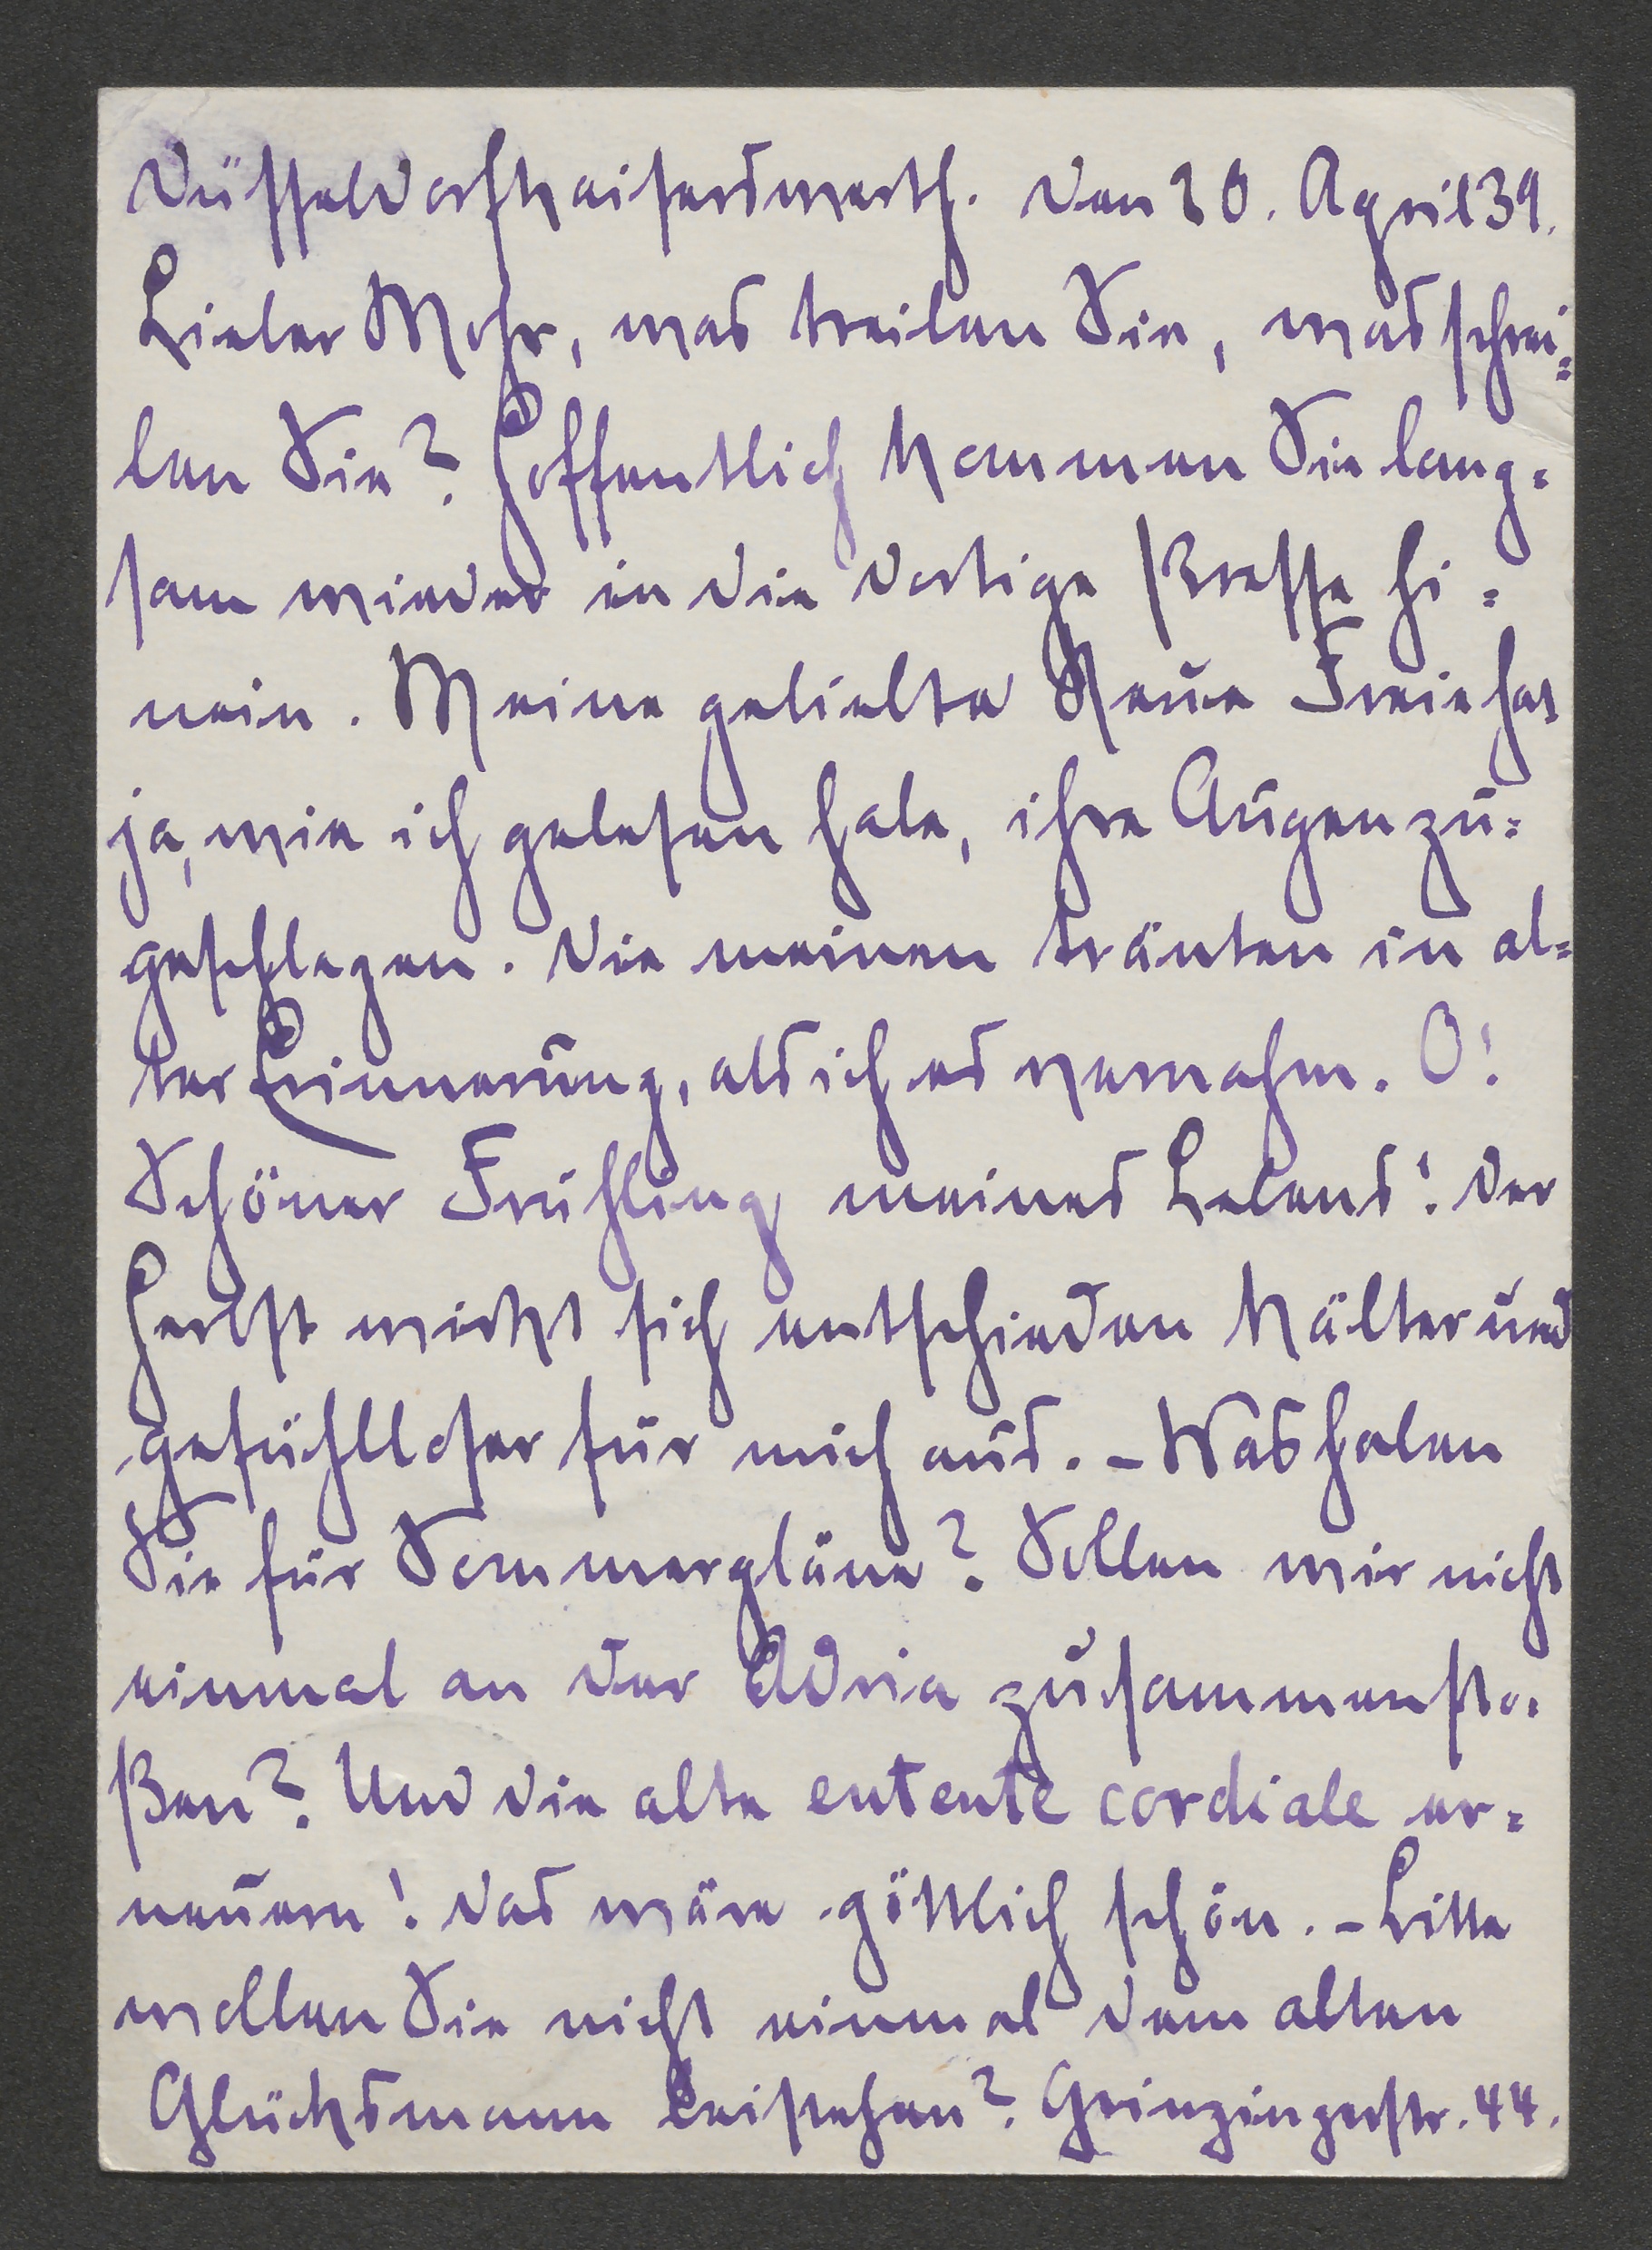 Düsseldorfkaiserswerth. Den 20. April 39.
Lieber Mohr, was treiben Sie, was schrei=
ben Sie? Hoffentlich kommen Sie lang=
sam wieder in die dortige Presse hi=
nein. Meine geliebte Neue Freie hat
ja, wie ich gelesen habe, ihre Augen zu=
geschlagen. Die meinen tränten in al=
ter Erinnerung, als ich es vernahm. O!
Schöner Frühling meines Lebens! Der
Herbst wirkt sich entschieden kälter und
gefühlloser für mich aus. – Was haben
Sie für Sommerpläne? Sollen wir nicht
einmal an der Adria zusammensto=
ßen? Und die alte entente cordiale er=
neuern! Das wäre göttlich schön. – Bitte
wollen Sie nicht einmal dem alten
Glücksmann beistehen? Grinzingerstr. 44.